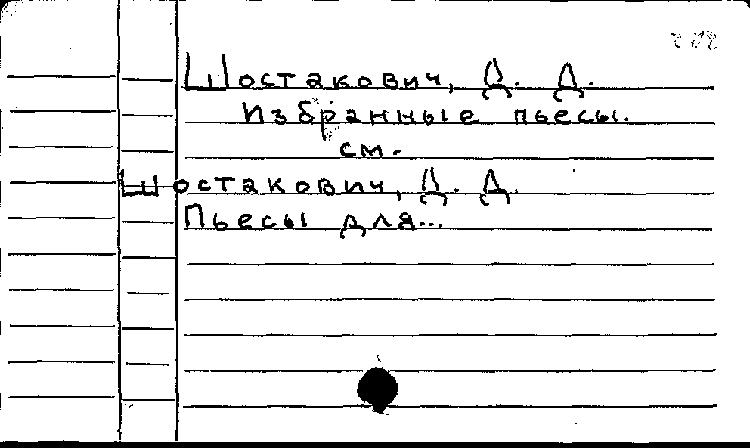 Шостакович, Д. Д.
Избранные пьесы.
см.
Шостакович, Д. Д.
Пьесы для...